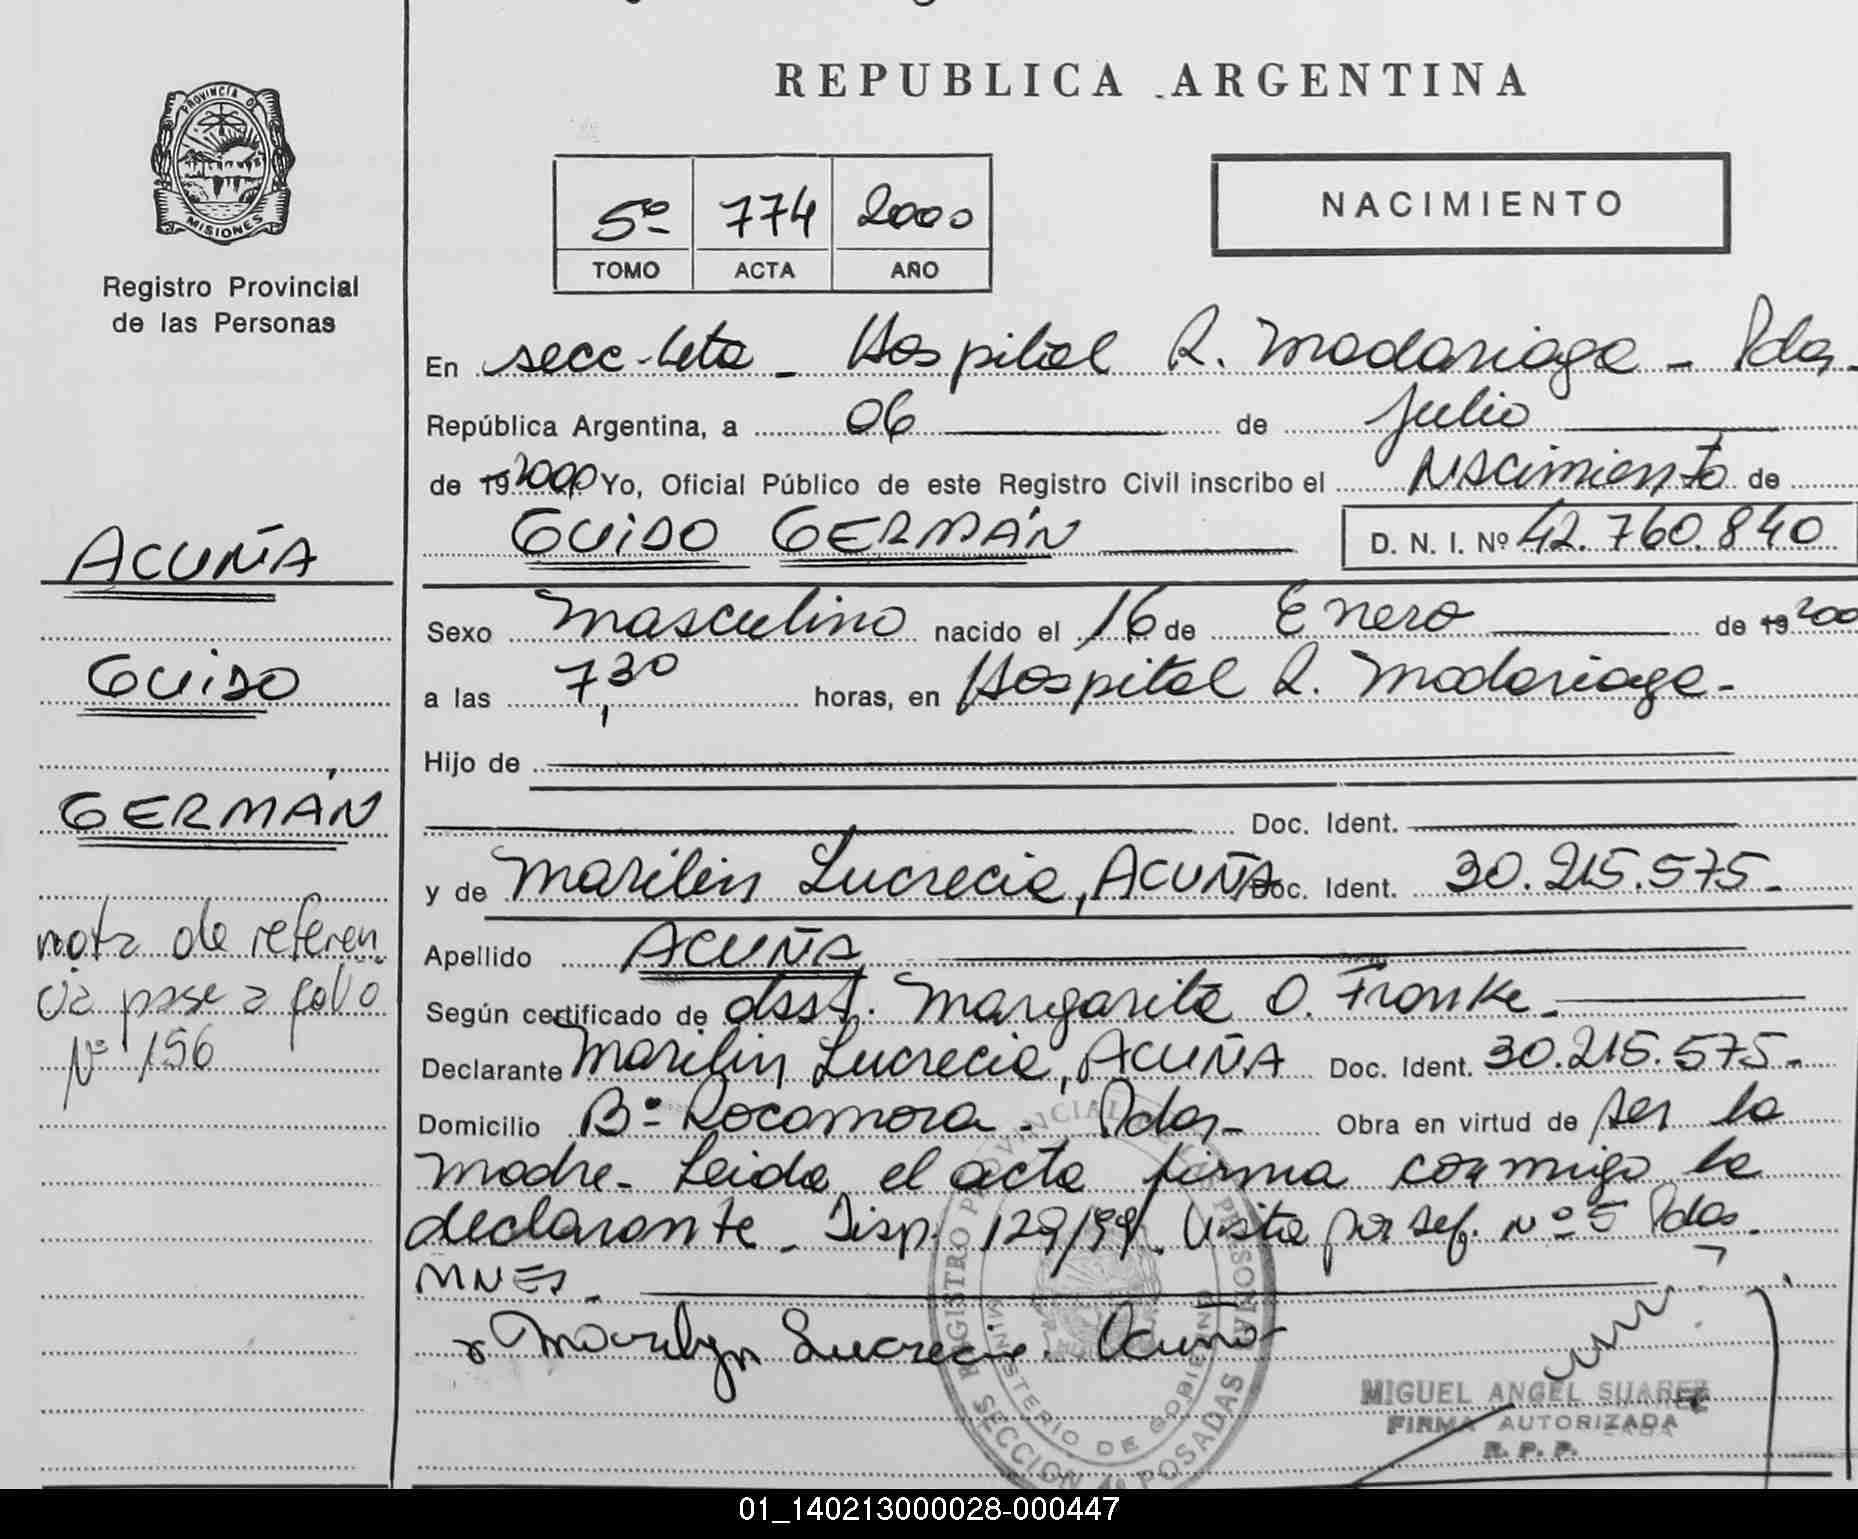 PROVINCIA D
MISIONES
Registro Provincial
de las Personas
ACUÑA
GUIDO
GERMÁN
nota de referen
cia pase a folio
Nº 156
REPUBLICA ARGENTINA
5º 774 2000
TOMO ACTA AÑO
NACIMIENTO
En secc- 4ta - Hospital R. Madariaga - Pdas.
República Argentina, a 06 de Julio
de 19 2000 Yo, Oficial Público de este Registro Civil inscribo el Nacimiento de
GUIDO GERMÁN D. N. I. Nº 42.760.840
Sexo Masculino nacido el 16 de Enero de 19 200
a las 7,30 horas, en Hospital R. Madariaga-
Hijo de
Doc. Ident.
y de Marilin Lucrecia, ACUÑA Doc. Ident. 30.215.575-
Apellido ACUÑA
Según certificado de Margarita O. Franke -
Declarante Marilin Lucrecia, ACUÑA Doc. Ident. 30.215.575-
Domicilio Bº Rocamora - Pdas- Obra en virtud de ser la
madre- Leida el acta firma conmigo la
declarante - Disp. 129/99. Vista por Def. Nº 5 Pdas.
MNES -
Marilyn Lucrecia Acuña
REGISTRO PROVINCIAL PERSONAS
MINISTERIO DE GOBIERNO
SECCION 4ª POSADAS
MIGUEL ANGEL SUAREZ
FIRMA AUTORIZADA
R. P. P.
01_140213000028-000447